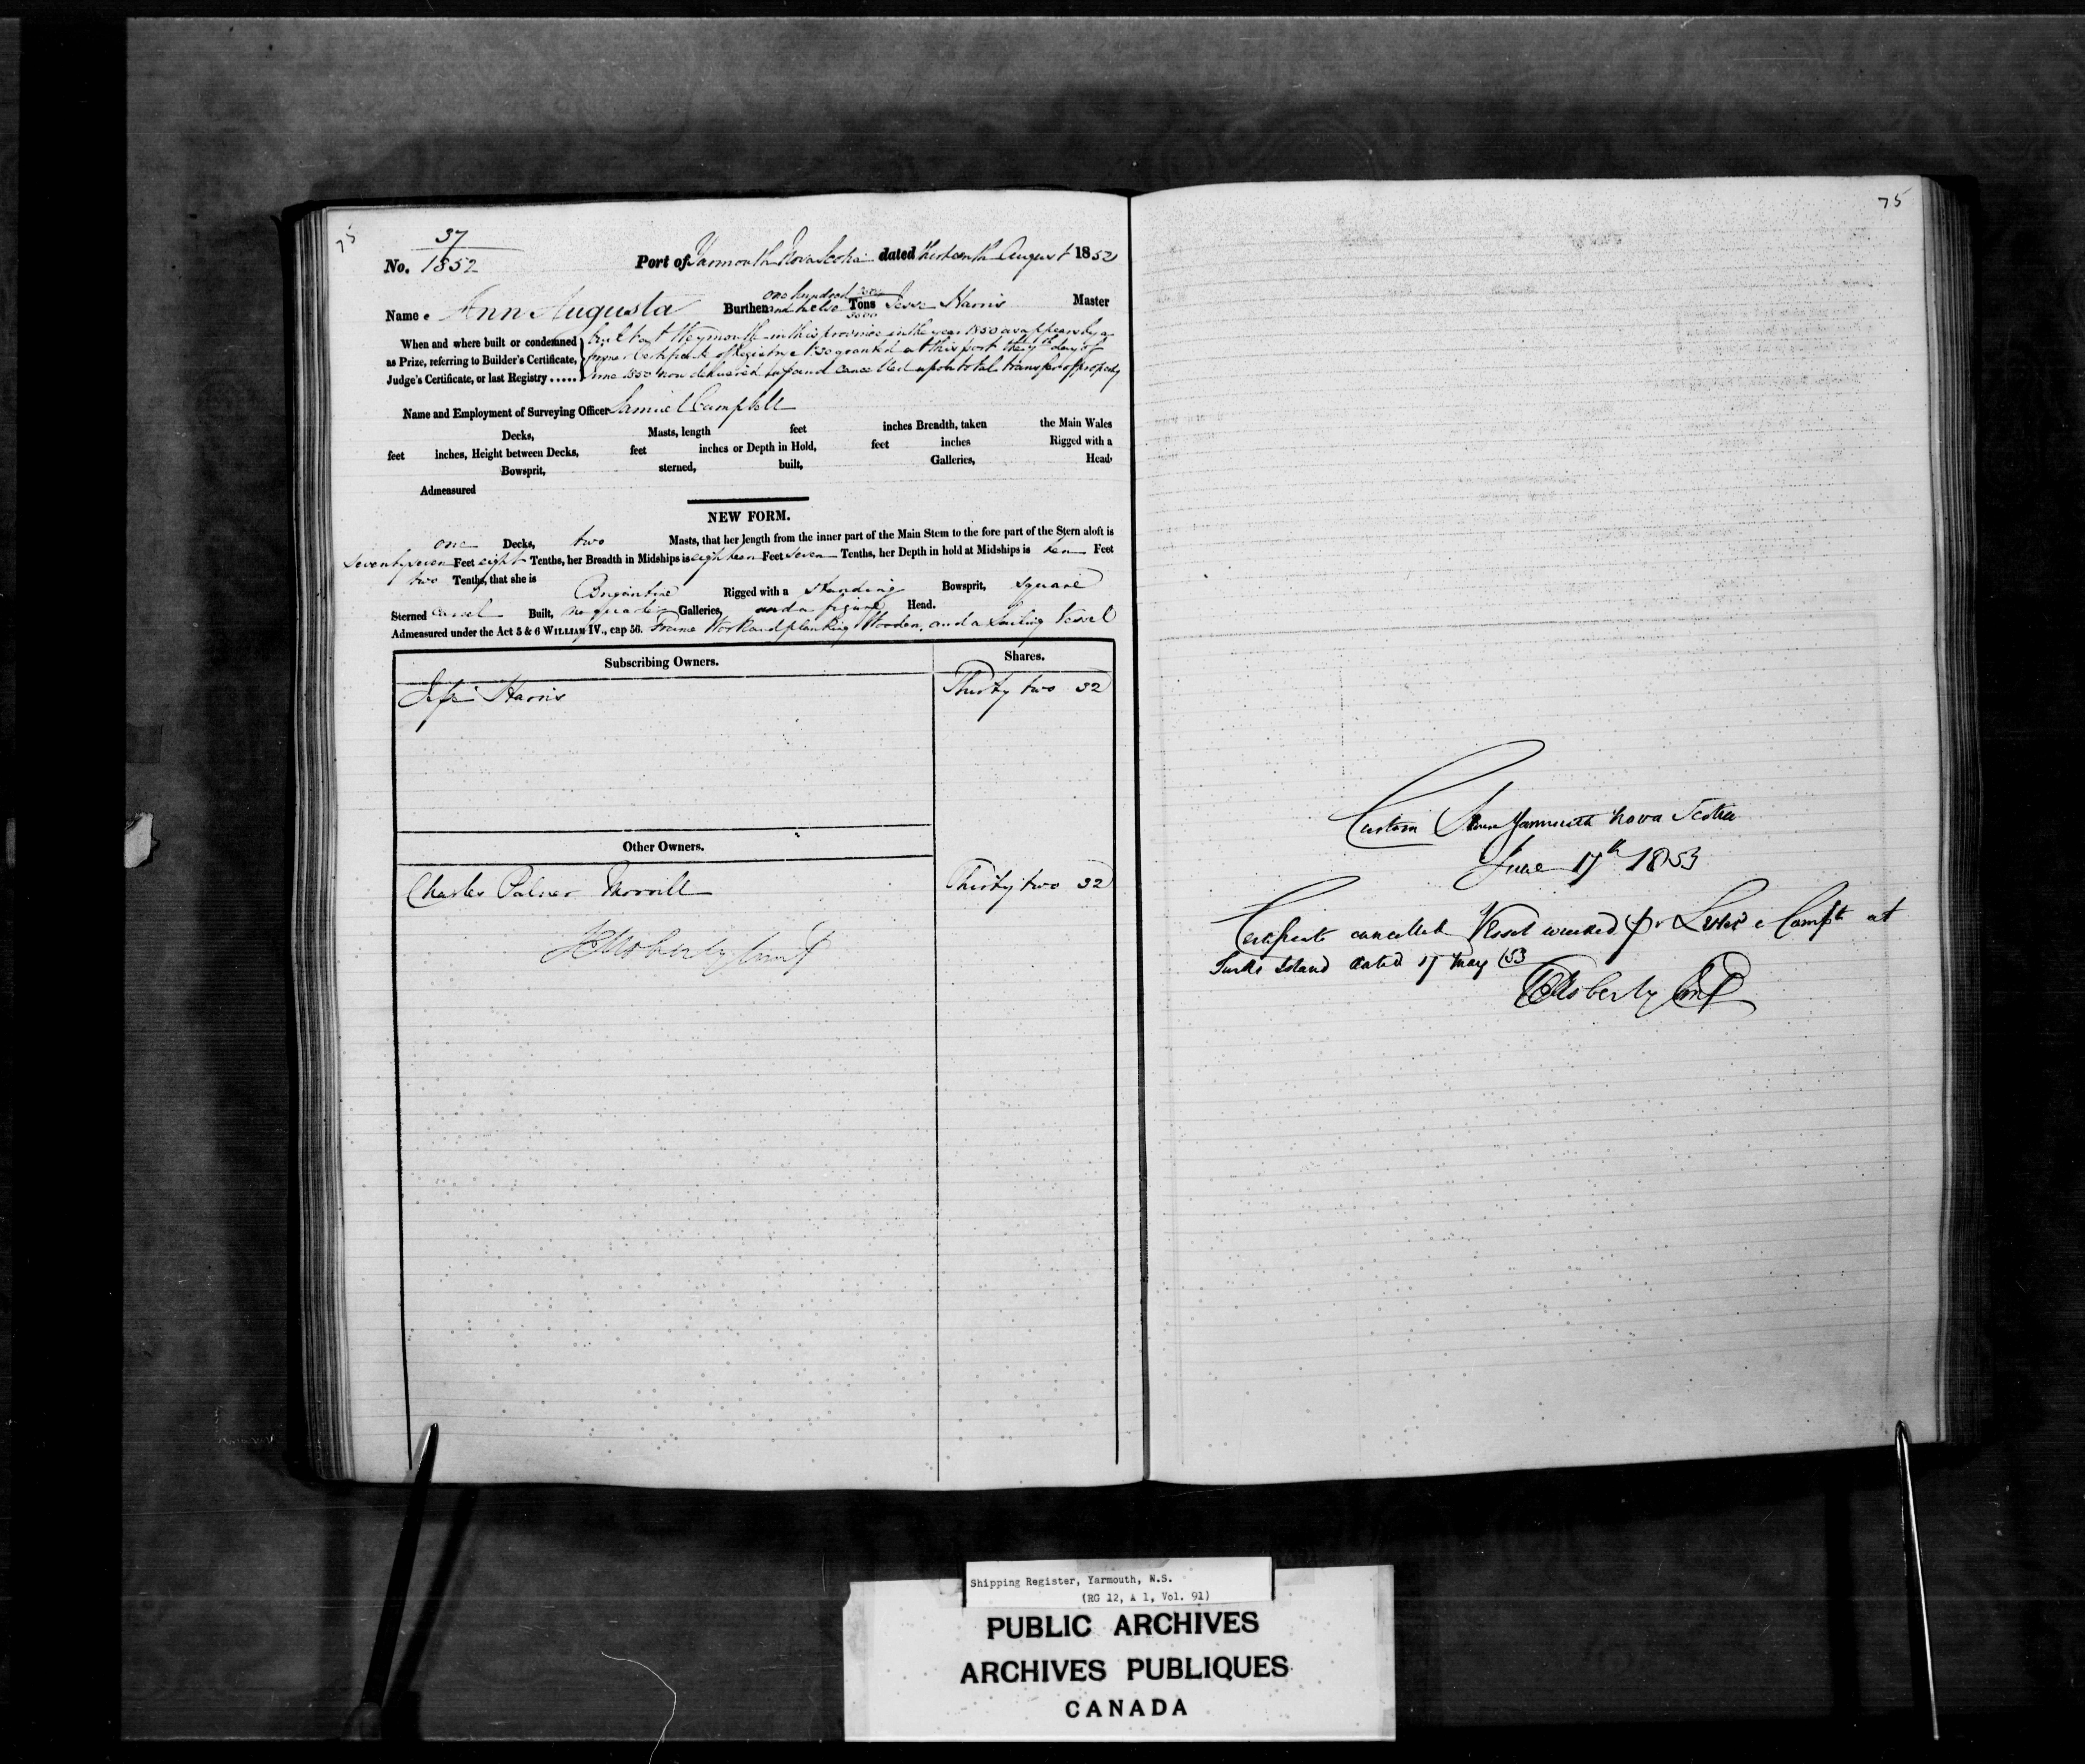 75
37
No. 1852
Port of Yarmouth Nova Scotia dated thirteenth August 1852
Name Ann Augusta Burthen one hundred and twelve Tons Jesse Harris Master
When and where built or condemned
as Prize, referring to Builder's Certificate,
Judge's Certificate, or last Registry .....
built at Weymouth in this province in the year 1850 as appears by a
former Certificate of Registry No 30 granted at this port the 7th day of
June 1850 now delivered up and cancelled upon total transfer of property
Name and Employment of Surveying Officer Samuel Campbell
Decks, Masts, length feet inches Breadth, taken the Main Wales
feet inches, Height between Decks, feet inches or Depth in Hold, feet inches Rigged with a
Bowsprit, sterned, built, Galleries, Head,
Admeasured
NEW FORM.
one Decks, two Masts, that her length from the inner part of the Main Stem to the fore part of the Stern aloft is
Seventy seven Feet eight Tenths, her Breadth in Midships is eighteen Feet seven Tenths, her Depth in hold at Midships is ten Feet
two Tenths, that she is Brigantine Rigged with a standing Bowsprit, square
Sterned carvel Built, no quarter Galleries, and a figure Head.
Admeasured under the Act 5 & 6 WILLIAM IV., cap 56. Frame Work and planking Wooden, and a Sailing Vessel
Subscribing Owners. Shares.
Jesse Harris Thirty two 32
Other Owners.
Charles Palmer Thirty two 32
75
Custom House Yarmouth Nova Scotia
June 17th 1853
Certificate cancelled Vessel wrecked at
Turks Island dated 17 May /53
Shipping Register, Yarmouth, N.S.
(RG 12, A 1, Vol. 91)
PUBLIC ARCHIVES
ARCHIVES PUBLIQUES
CANADA